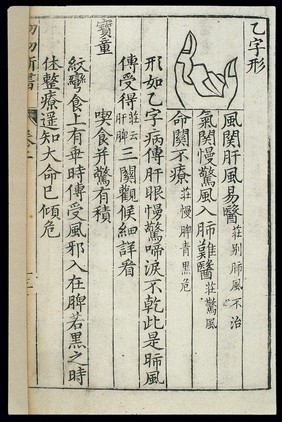 乙字形
風関肝風易醫 莊別肺風不治
氣関慢驚風入肺難醫 莊驚風
命関不療 莊慢脾青黒危
形如乙字病傳肝眼慢驚啼淚不乾此是肺風
傳受得 莊云肝脾 三関觀候細詳看
寳童
喫食并驚有積
紋彎食上有每時傳受風邪入在脾若黒之時
体整療遥知大命已傾危
幼幼新書
卷二